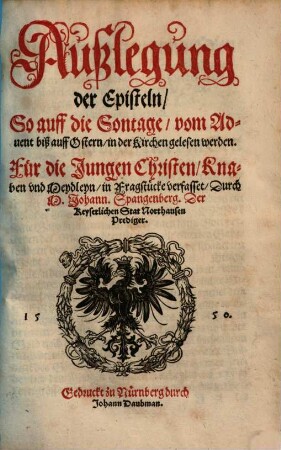 Außlegung
der Episteln/
So auff die Sontage/ vom Ad-
uent biß auff Ostern/ in der Kirchen gelesen werden.
Für die Jungen Christen/ Kna-
ben vnd Meydleyn/ in Fragstücke verfasset/ Durch
M. Johann. Spangenberg. Der
Keyserlichen Stat Northausen
Prediger.
15 50.
Gedruckt zu Nürnberg durch
Johann Daubman.